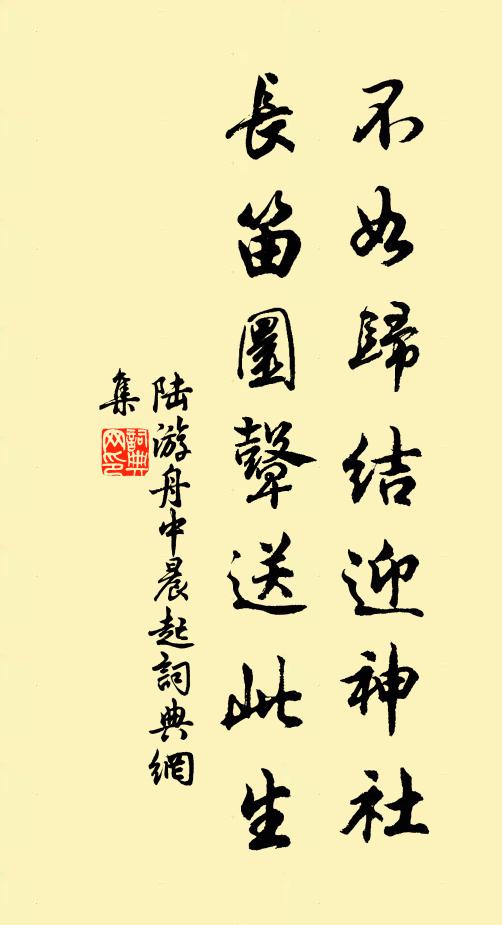 不如歸結迎神社
長笛圓鼙送此生
陸游舟中晨起詞典網
集
詞典
网印